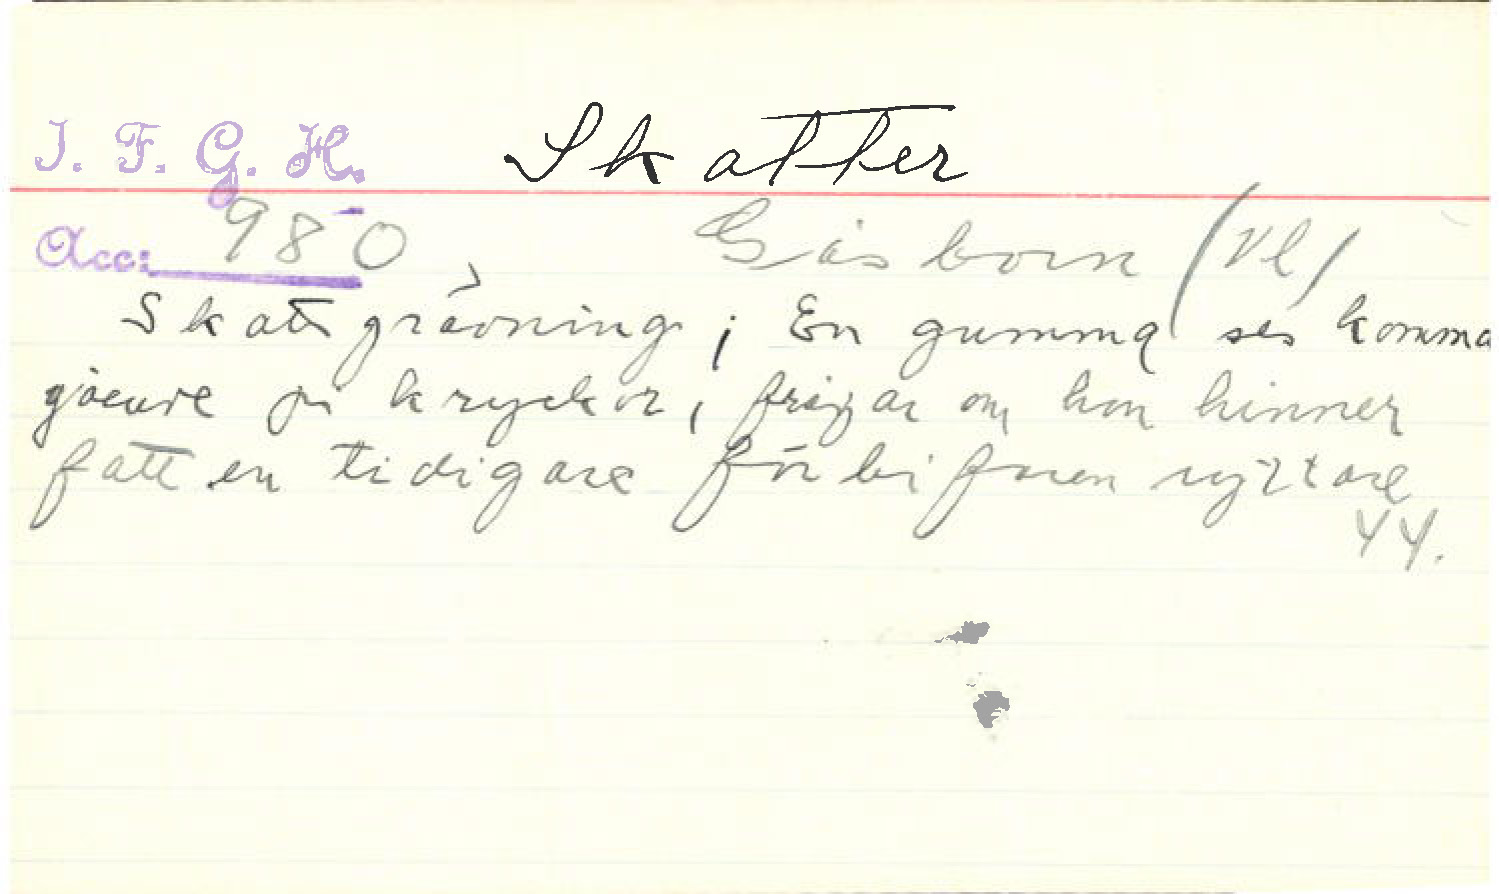 I. F. G. H. Skatter
Acc: 980, Gåsborn (Vl)
Skattgrävning; En gumma ses komma
gående på kryckor, frågar om hon hinner
fatt en tidigare förbifaren ryttare
44.